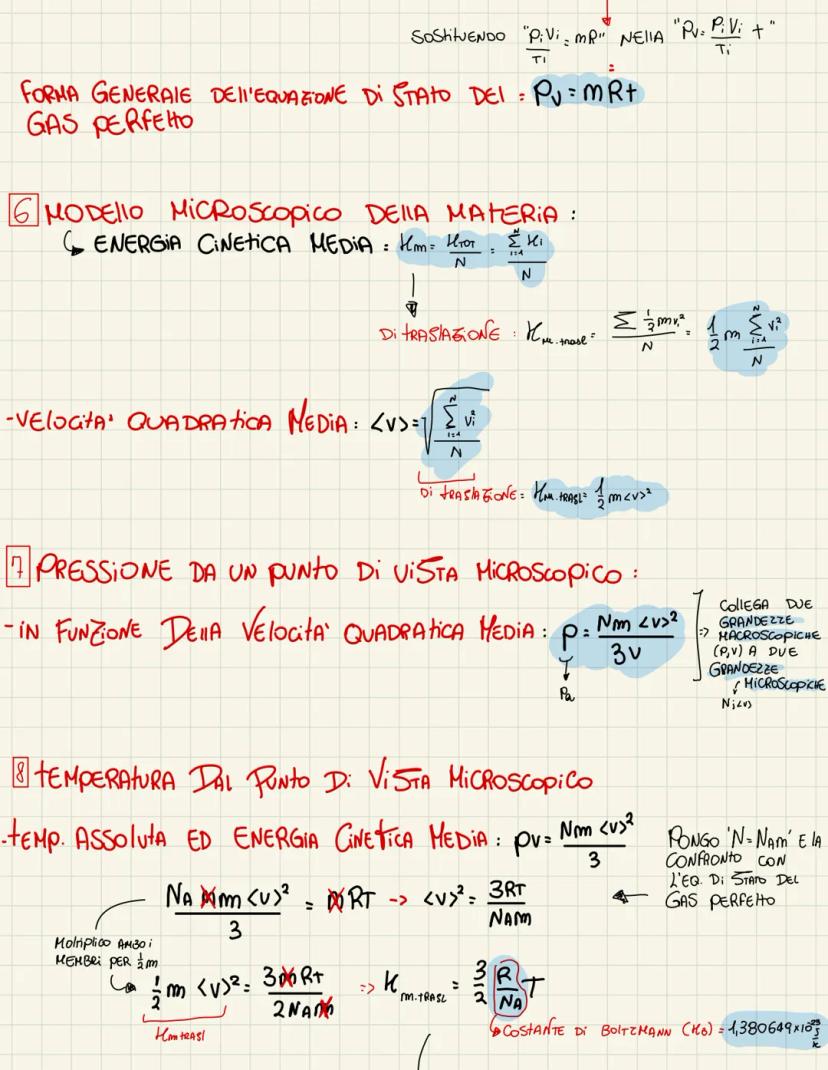 SOSTITUENDO "PiVi/Ti = mR" NELLA "Pv = PiVi/Ti t"
FORMA GENERALE DELL'EQUAZIONE DI STATO DEL : Pv = mRt
GAS PERFETTO
6 MODELLO MICROSCOPICO DELLA MATERIA :
↳ ENERGIA CINETICA MEDIA : Km = KTOT/N = Σ(i=1, N) Ki / N
DI TRASLAZIONE : KM.trasl = Σ ½mvi² / N = ½ m Σ(i=1, N) vi² / N
-VELOCITA' QUADRATICA MEDIA : <v> = √(Σ(i=1, N) vi² / N)
DI TRASLAZIONE = KM.TRASL = ½ m <v>²
7 PRESSIONE DA UN PUNTO DI VISTA MICROSCOPICO :
-IN FUNZIONE DELLA VELOCITA' QUADRATICA MEDIA : P = Nm <v>² / 3V
Pa
=> COLLEGA DUE
GRANDEZZE
MACROSCOPICHE
(P,V) A DUE
GRANDEZZE
MICROSCOPICHE
N;<v>
8 TEMPERATURA DAL PUNTO DI VISTA MICROSCOPICO
-TEMP. ASSOLUTA ED ENERGIA CINETICA MEDIA : pv = Nm <v>² / 3
PONGO 'N=NAm' E LA
CONFRONTO CON
L'EQ. DI STATO DEL
GAS PERFETTO
NA mm <v>² / 3 = mRT -> <v>² = 3RT / NAm
MOLTIPLICO AMBO I
MEMBRI PER ½m
½ m <v>² = 3mRt / 2NAm => Km.TRASL = 3/2 R/NA T
KmTRASL
COSTANTE DI BOLTZMANN (KB) = 1,380649×10⁻²³ J/K